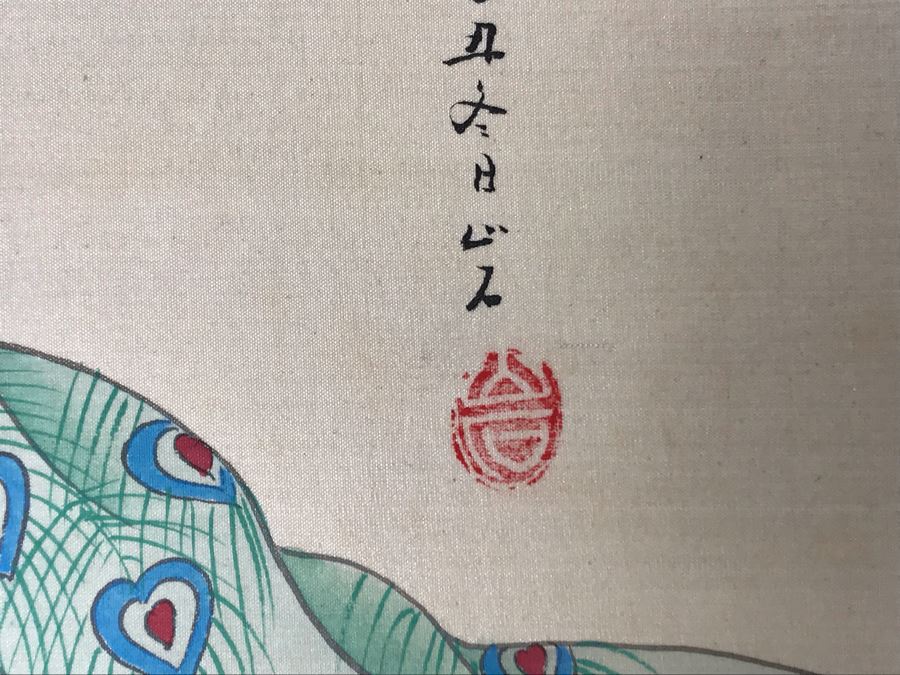 丑冬日山石